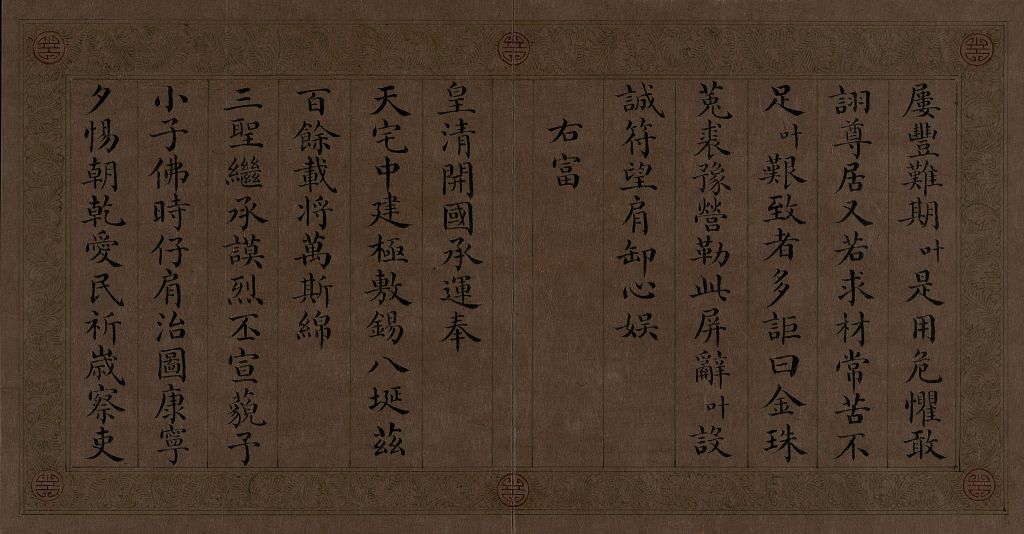 屢豐難期叶是用危懼敢
詡尊居又若求材常苦不
足叶艱致者多詎曰金珠
菟裘豫營勒此屏辭叶設
誠符望肩卸心娛
右富
皇清開國承運奉
天宅中建極敷錫八埏茲
百餘載將萬斯綿
三聖繼承謨烈丕宣藐予
小子佛時仔肩治圖康寧
夕惕朝乾愛民祈歲察吏